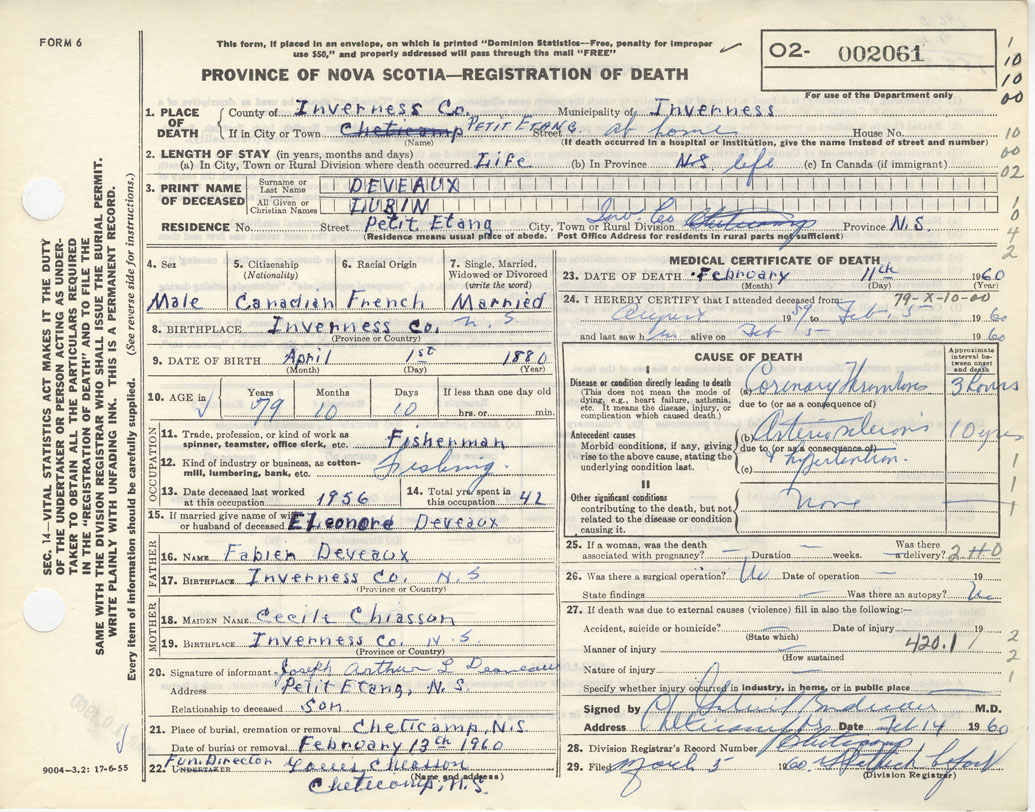 FORM 6
This form, if placed in an envelope, on which is printed "Dominion Statistics—Free, penalty for improper
use $50," and properly addressed will pass through the mail "FREE"
PROVINCE OF NOVA SCOTIA—REGISTRATION OF DEATH
O2- 002061
For use of the Department only
1. PLACE OF DEATH
County of Inverness Co. Municipality of Inverness
If in City or Town Cheticamp PETIT ETANG Street at home House No.
(Name) (If death occurred in a hospital or institution, give the name instead of street and number)
2. LENGTH OF STAY (in years, months and days)
(a) In City, Town or Rural Division where death occurred Life (b) In Province N.S. life (c) In Canada (if immigrant)
3. PRINT NAME OF DECEASED
Surname or Last Name DEVEAUX
All Given or Christian Names LUBIN
RESIDENCE No. Street Petit Etang City, Town or Rural Division Inv. Co Cheticamp Province N.S.
(Residence means usual place of abode. Post Office Address for residents in rural parts not sufficient)
4. Sex 5. Citizenship (Nationality) 6. Racial Origin 7. Single, Married, Widowed or Divorced (write the word)
Male Canadian French Married
8. BIRTHPLACE Inverness Co. N.S.
(Province or Country)
9. DATE OF BIRTH April 1st 1880
(Month) (Day) (Year)
10. AGE in Years Months Days If less than one day old
79 10 10 hrs. or min.
OCCUPATION
11. Trade, profession, or kind of work as
spinner, teamster, office clerk, etc. Fisherman
12. Kind of industry or business, as cotton-
mill, lumbering, bank, etc. Fishing.
13. Date deceased last worked
at this occupation 1956
14. Total yrs. spent in
this occupation 42
15. If married give name of wife
or husband of deceased ELeonore Deveaux
FATHER
16. NAME Fabien Deveaux
17. BIRTHPLACE Inverness Co. N.S
(Province or Country)
MOTHER
18. MAIDEN NAME Cecile Chiasson
19. BIRTHPLACE Inverness Co. N.S.
(Province or Country)
20. Signature of informant Joseph Arthur L
Address Petit Etang, N.S.
Relationship to deceased son.
21. Place of burial, cremation or removal Cheticamp, N.S
Date of burial or removal February 13th 1960
22. UNDERTAKER Fun. Director
(Name and address)
Cheticamp, N.S.
9004—3.2: 17-6-55
MEDICAL CERTIFICATE OF DEATH
23. DATE OF DEATH February 11th 1960
(Month) (Day) (Year)
79-X-10-00
24. I HEREBY CERTIFY that I attended deceased from:
August 1959 to Feb. 5 1960
and last saw him alive on Feb 5 1960
CAUSE OF DEATH
Approximate interval between onset and death
I
Disease or condition directly leading to death
(This does not mean the mode of
dying, e.g., heart failure, asthenia,
etc. It means the disease, injury, or
complication which caused death.)
(a) Coronary thrombosis 3 hours
due to (or as a consequence of)
Antecedent causes
Morbid conditions, if any, giving
rise to the above cause, stating the
underlying condition last.
(b) Arteriosclerosis 10 yrs
due to (or as a consequence of)
(c) & hypertention.
II
Other significant conditions
contributing to the death, but not
related to the disease or condition
causing it.
none
25. If a woman, was the death
associated with pregnancy? Duration weeks. Was there a delivery? 2 H O
26. Was there a surgical operation? No Date of operation 19
State findings Was there an autopsy? No
27. If death was due to external causes (violence) fill in also the following:—
Accident, suicide or homicide? Date of injury 19
(State which)
Manner of injury 420.1
(How sustained
Nature of injury
Specify whether injury occurred in industry, in home, or in public place
Signed by M.D.
Address Cheticamp NS Date Feb 14 1960
28. Division Registrar's Record Number Cheticamp
29. Filed March 5 1960
(Division Registrar)
SEC. 14—VITAL STATISTICS ACT MAKES IT THE DUTY
OF THE UNDERTAKER OR PERSON ACTING AS UNDER-
TAKER TO OBTAIN ALL THE PARTICULARS REQUIRED
IN THE "REGISTRATION OF DEATH" AND TO FILE THE
SAME WITH THE DIVISION REGISTRAR WHO SHALL ISSUE THE BURIAL PERMIT.
WRITE PLAINLY WITH UNFADING INK. THIS IS A PERMANENT RECORD.
Every item of information should be carefully supplied. (See reverse side for instructions.)